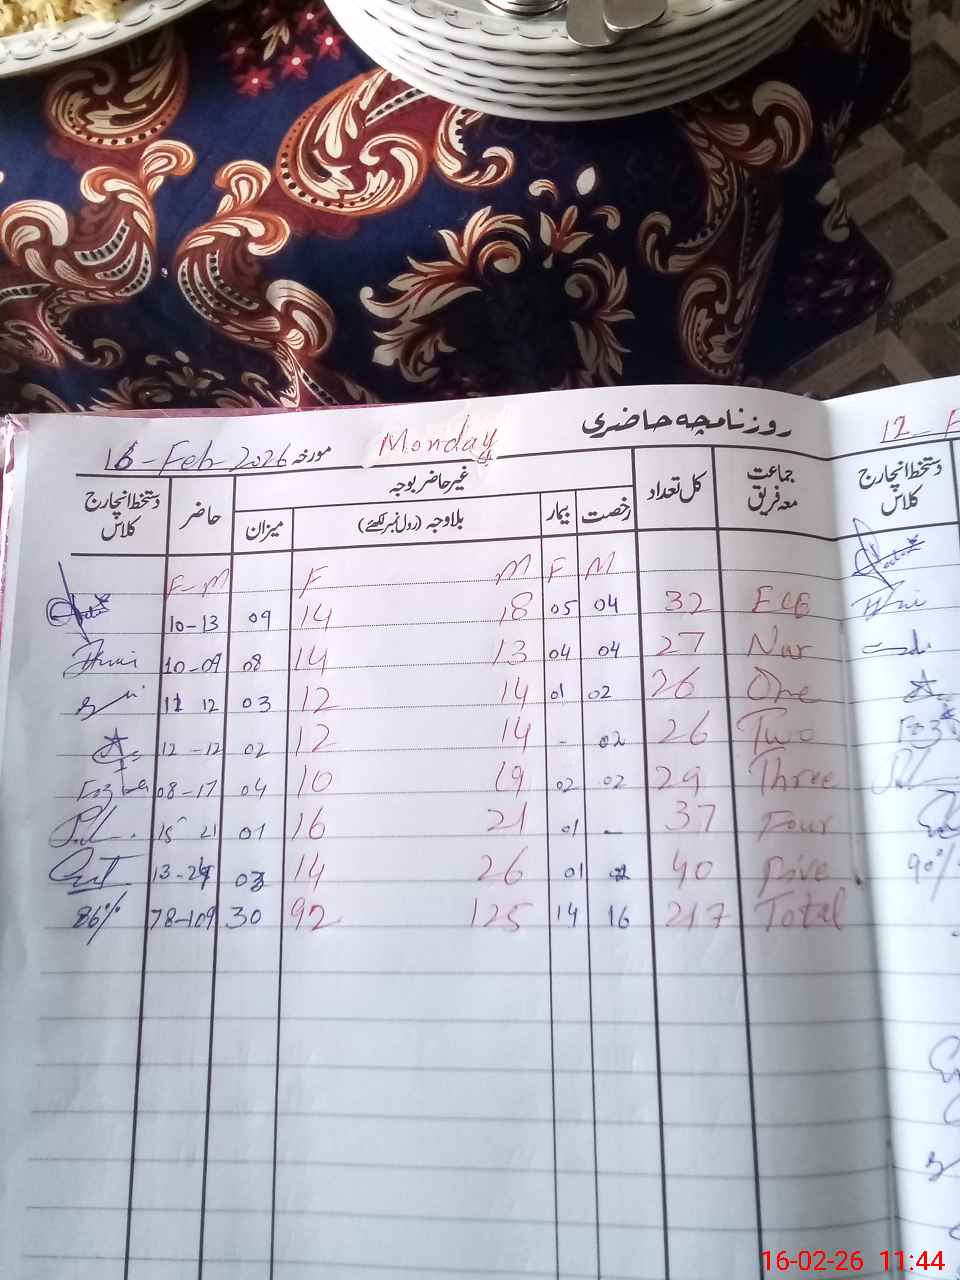 روزنامچہ حاضری
Monday
مورخہ 16-Feb-2026
جماعت معہ فریق | کل تعداد | غیر حاضر بوجہ | حاضر | دستخط انچارج کلاس
رخصت | بیمار | بلاوجہ (رول نمبر لکھئے) | میزان
F-M | F | M | F | M
10-13 | 09 | 14 | 18 | 05 | 04 | 32 | ECE
10-09 | 08 | 14 | 13 | 04 | 04 | 27 | Nur
11 12 | 03 | 12 | 14 | 01 | 02 | 26 | One
12-12 | 02 | 12 | 14 | - | 02 | 26 | Two
08-17 | 04 | 10 | 19 | 02 | 02 | 29 | Three
15 21 | 01 | 16 | 21 | 01 | - | 37 | Four
03 | 14 | 26 | 01 | 40 | Five
86% | 78-109 | 30 | 92 | 125 | 14 | 16 | 217 | Total
12
دستخط انچارج کلاس
90%
16-02-26 11:44